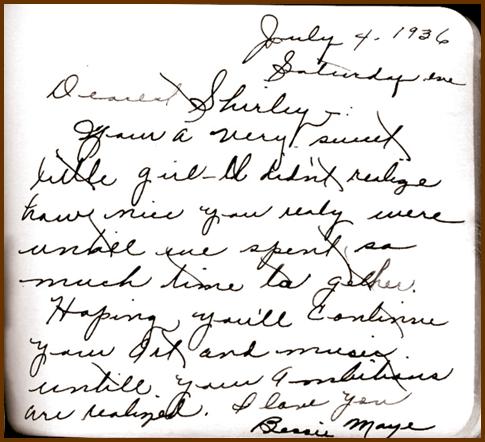 July 4. 1936
Saturday eve
Dearest Shirley -:
Your a very sweet
little girl - I didn't realize
how nice you realy were
untill we spent so
much time to gether.
Hoping you'll Continue
your Art and music
untill your Ambitions
are realized. I love you
Bessie Maye